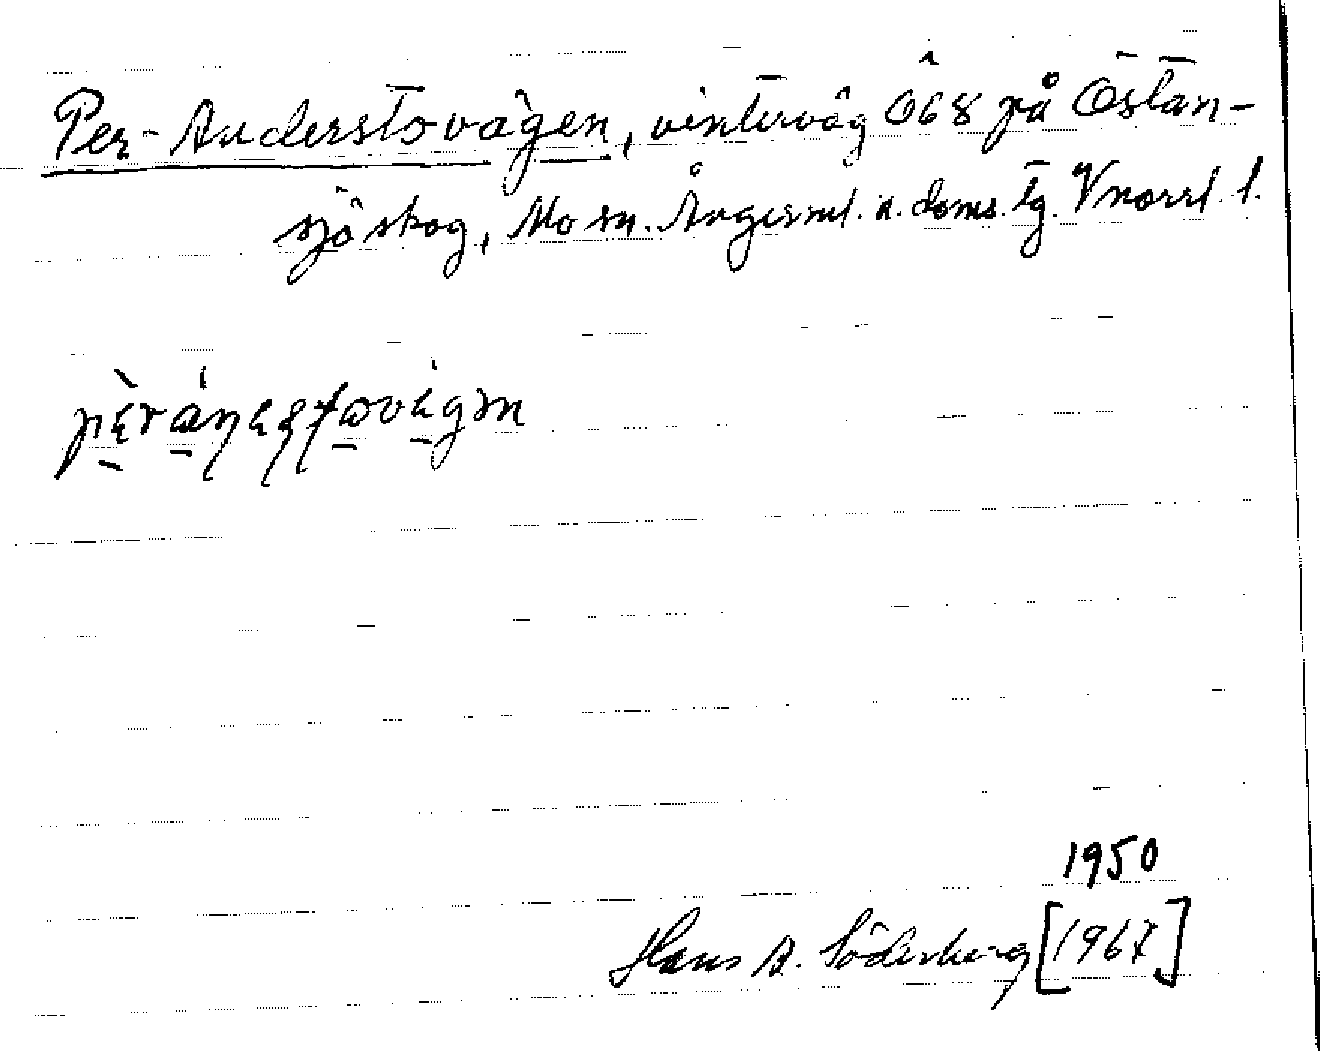 Per-Anderstovägen, vinterväg Ö68 på Östan-
sjö skog, Mo sn. Ångerml. n. doms. tg. Vnorrl l.
1950
Hans A. Söderberg [1967]